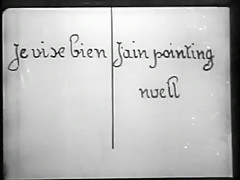 Je vise bien
I am pointing
well